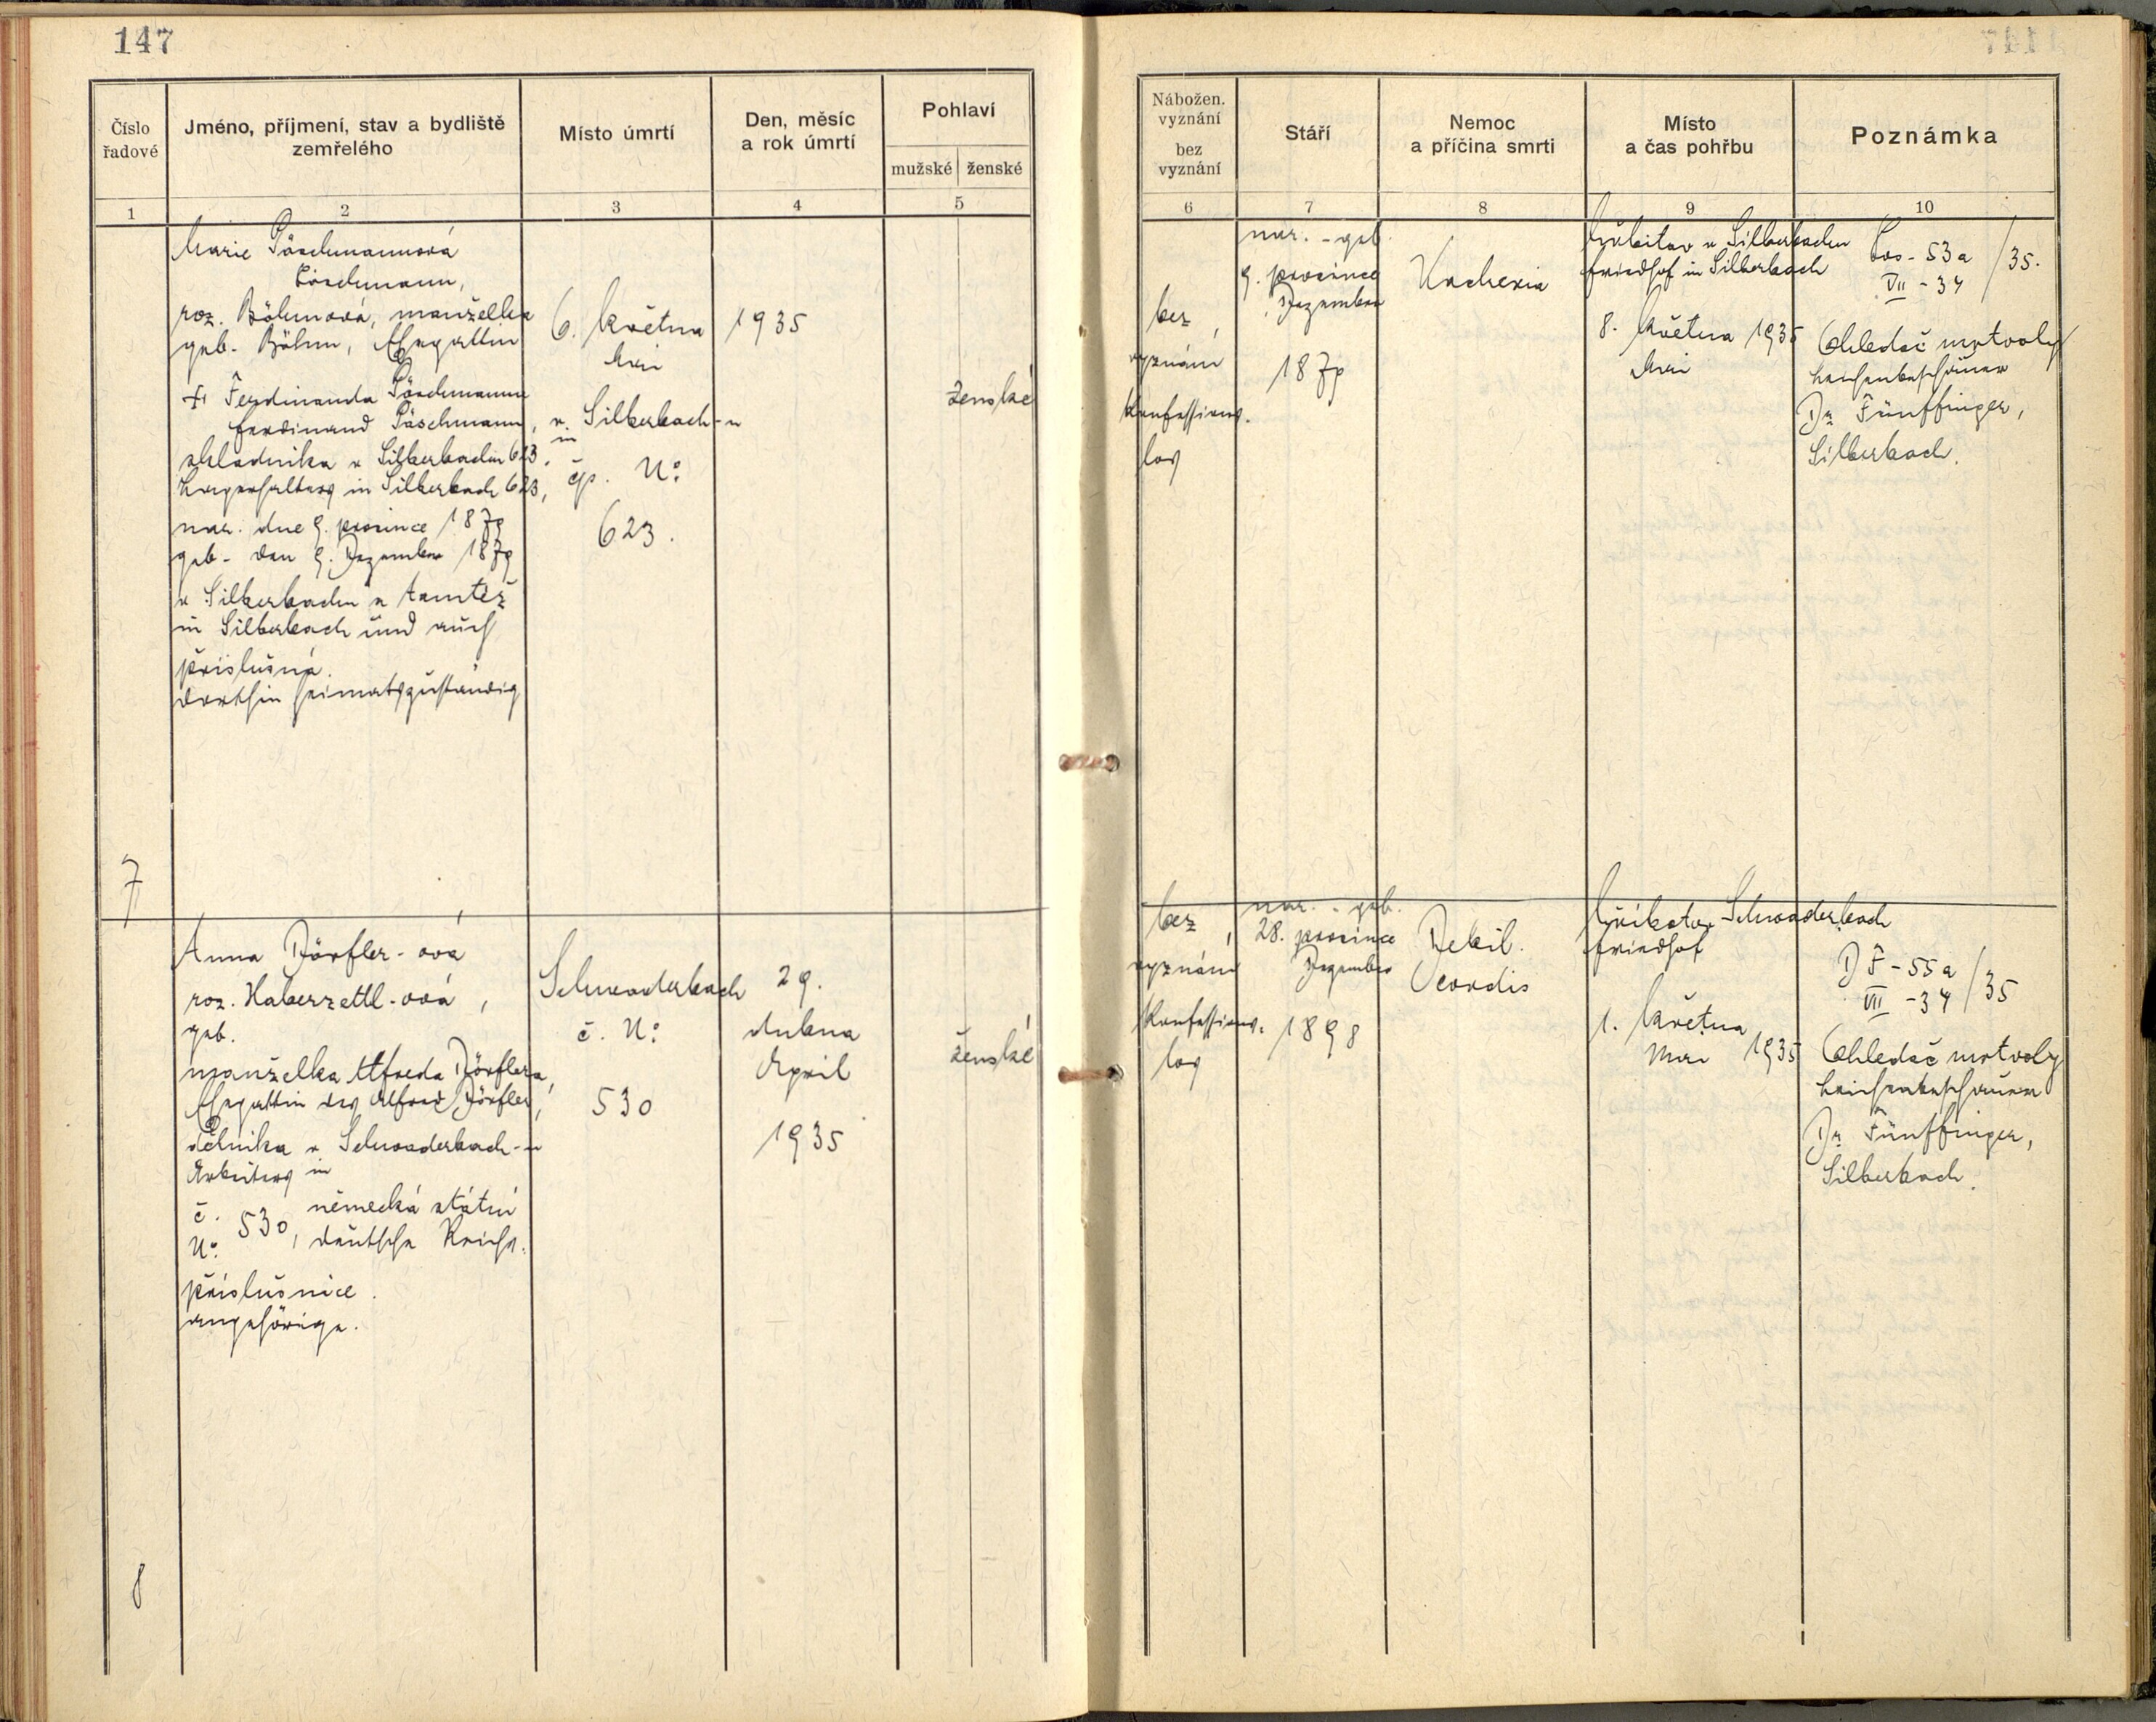 147
Číslo
řadové
Jméno, příjmení, stav a bydliště
zemřelého
Místo úmrtí
Den, měsíc
a rok úmrtí
Pohlaví
mužské
ženské
1
2
3
4
5
Nábožen.
vyznání
bez
vyznání
Stáří
Nemoc
a příčina smrti
Místo
a čas pohřbu
Poznámka
6
7
8
9
10
7
Marie Pöschmannová
Pöschmann,
roz. Böhmová, manželka
geb. Böhm, Ehegattin
Ferdinanda Pöschmanna
Ferdinand Pöschmann,
skladníka v Silberbachu 623,
Lagerhalters in Silberbach 623,
nar. dne 9. prosince 187
geb. den 9. Dezember 187
v Silberbachu a tamtéž
in Silberbach und auch
příslušná.
dorthin heimatszuständig
6. května
Mai
v. Silberbach-u
in
čp. No
623.
1935
ženské
bez
vyznání
konfessions-
los
nar. - geb.
9. prosince
Dezember
187
Kachexia
hřbitov v Silberbachu
Friedhof in Silberbach
8. května 1935
Mai
53a
VII - 34 / 35.
Ohledač mrtvoly
Leichenbeschauer
Dr. Fünffinger,
Silberbach.
8
Anna Dörfler-ová
roz. Haberzettl-ová,
geb.
manželka Alfreda Dörflera,
Ehegattin des Alfred Dörfler,
dělníka v Schwaderbach-u
Arbeiters in
č.
No 530, německá státní
deutsche Reichs-
příslušnice.
angehörige.
Schwaderbach
č. No
530
29.
dubna
April
1935
ženské
bez
vyznání
konfessions-
los
nar. - geb.
28. prosince
Dezember
1898
Debil.
cordis
hřbitov Schwaderbach
Friedhof
1. května
Mai 1935
DF - 55a
VIII - 34 / 35
Ohledač mrtvoly
Leichenbeschauer
Dr. Fünffinger,
Silberbach.